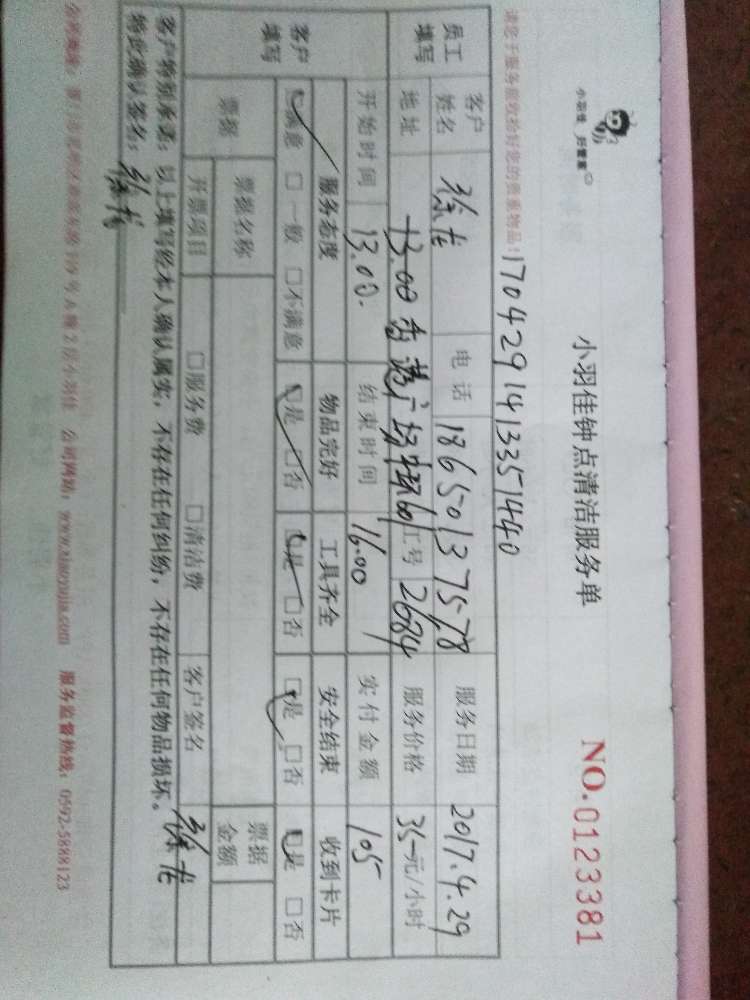 小羽佳 好管家
小羽佳钟点清洁服务单
NO.0123381
请您于服务前收拾好您的贵重物品！
17042914133571440
员工填写 客户姓名 徐龙 电话 18650137578 服务日期 2017.4.29
地址 13.00 香港广场 工号 2684 服务价格 35元/小时
开始时间 13.00. 结束时间 16.00 实付金额 105
客户填写 服务态度 物品完好 工具齐全 安全结束 收到卡片
☑满意 □一般 □不满意 ☑是 □否 ☑是 □否 ☑是 □否 ☑是 □否
票据 票据名称 票据金额
开票项目 □服务费 □清洁费 客户签名 徐龙
客户特别承诺：以上填写经本人确认属实，不存在任何纠纷，不存在任何物品损坏。
特此确认签名：徐龙
公司网站：www.xiaoyujia.com 服务监督热线：0592-5888123